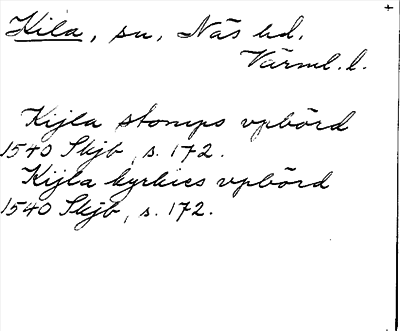 Kila, sn, Näs hd,
Värml. l.
Kijla stomps vpbörd
1540 Skjb, s. 172.
Kijla kyrkies vpbörd
1540 Skjb, s. 172.